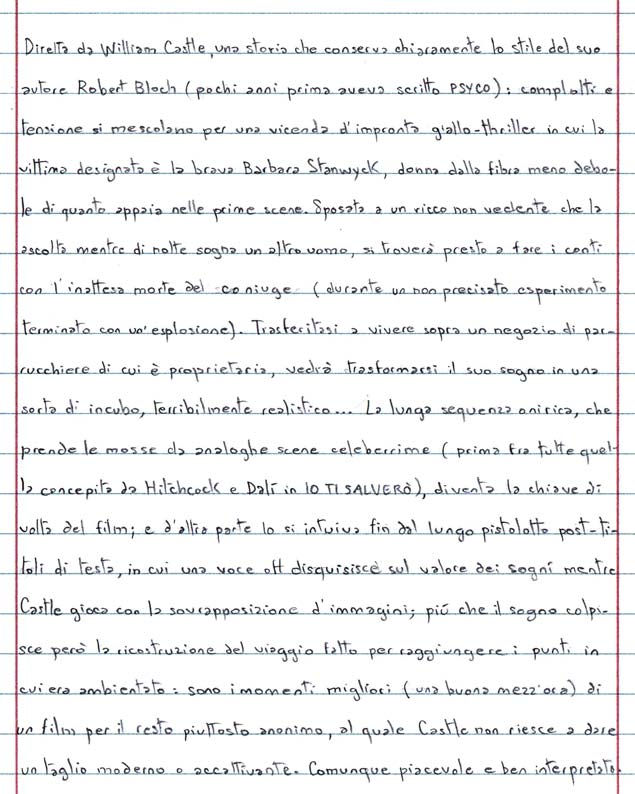 Diretta da William Castle, una storia che conserva chiaramente lo stile del suo
autore Robert Bloch (pochi anni prima aveva scritto PSYCO): complotti e
tensione si mescolano per una vicenda d'impronta giallo-thriller in cui la
vittima designata è la brava Barbara Stanwyck, donna dalla fibra meno debo-
le di quanto appaia nelle prime scene. Sposata a un ricco non vedente che la
ascolta mentre di notte sogna un altro uomo, si troverà presto a fare i conti
con l'inattesa morte del coniuge (durante un non precisato esperimento
terminato con un'esplosione). Trasferitasi a vivere sopra un negozio di par-
rucchiere di cui è proprietaria, vedrà trasformarsi il suo sogno in una
sorta di incubo, terribilmente realistico... La lunga sequenza onirica, che
prende le mosse da analoghe scene celeberrime (prima fra tutte quel-
la concepita da Hitchcock e Dalí in IO TI SALVERÒ), diventa la chiave di
volta del film; e d'altra parte lo si intuiva fin dal lungo pistolotto post-ti-
toli di testa, in cui una voce off disquisisce sul valore dei sogni mentre
Castle gioca con la sovrapposizione d'immagini; più che il sogno colpi-
sce però la ricostruzione del viaggio fatto per raggiungere i punti in
cui era ambientato: sono i momenti migliori (una buona mezz'ora) di
un film per il resto piuttosto anonimo, al quale Castle non riesce a dare
un taglio moderno o accattivante. Comunque piacevole e ben interpretato.